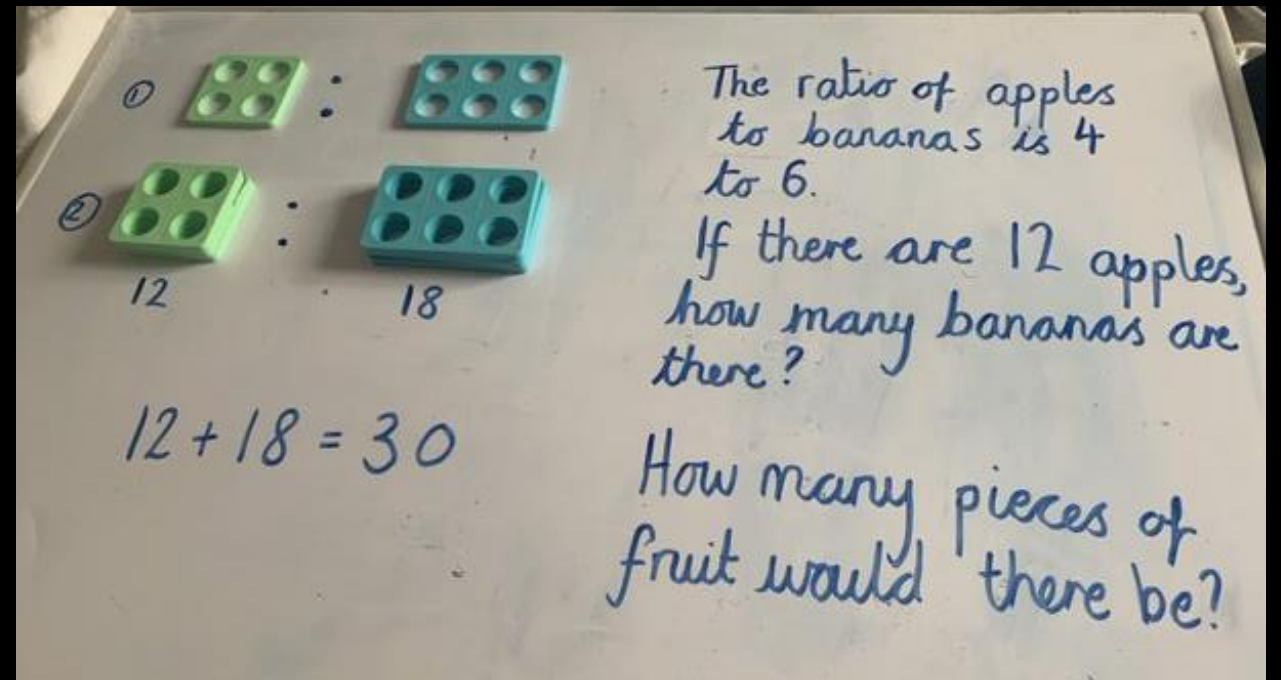 ①  :
The ratio of apples
to bananas is 4
to 6.
②  :
12  18
If there are 12 apples,
how many bananas are
there?
12 + 18 = 30
How many pieces of
fruit would there be?